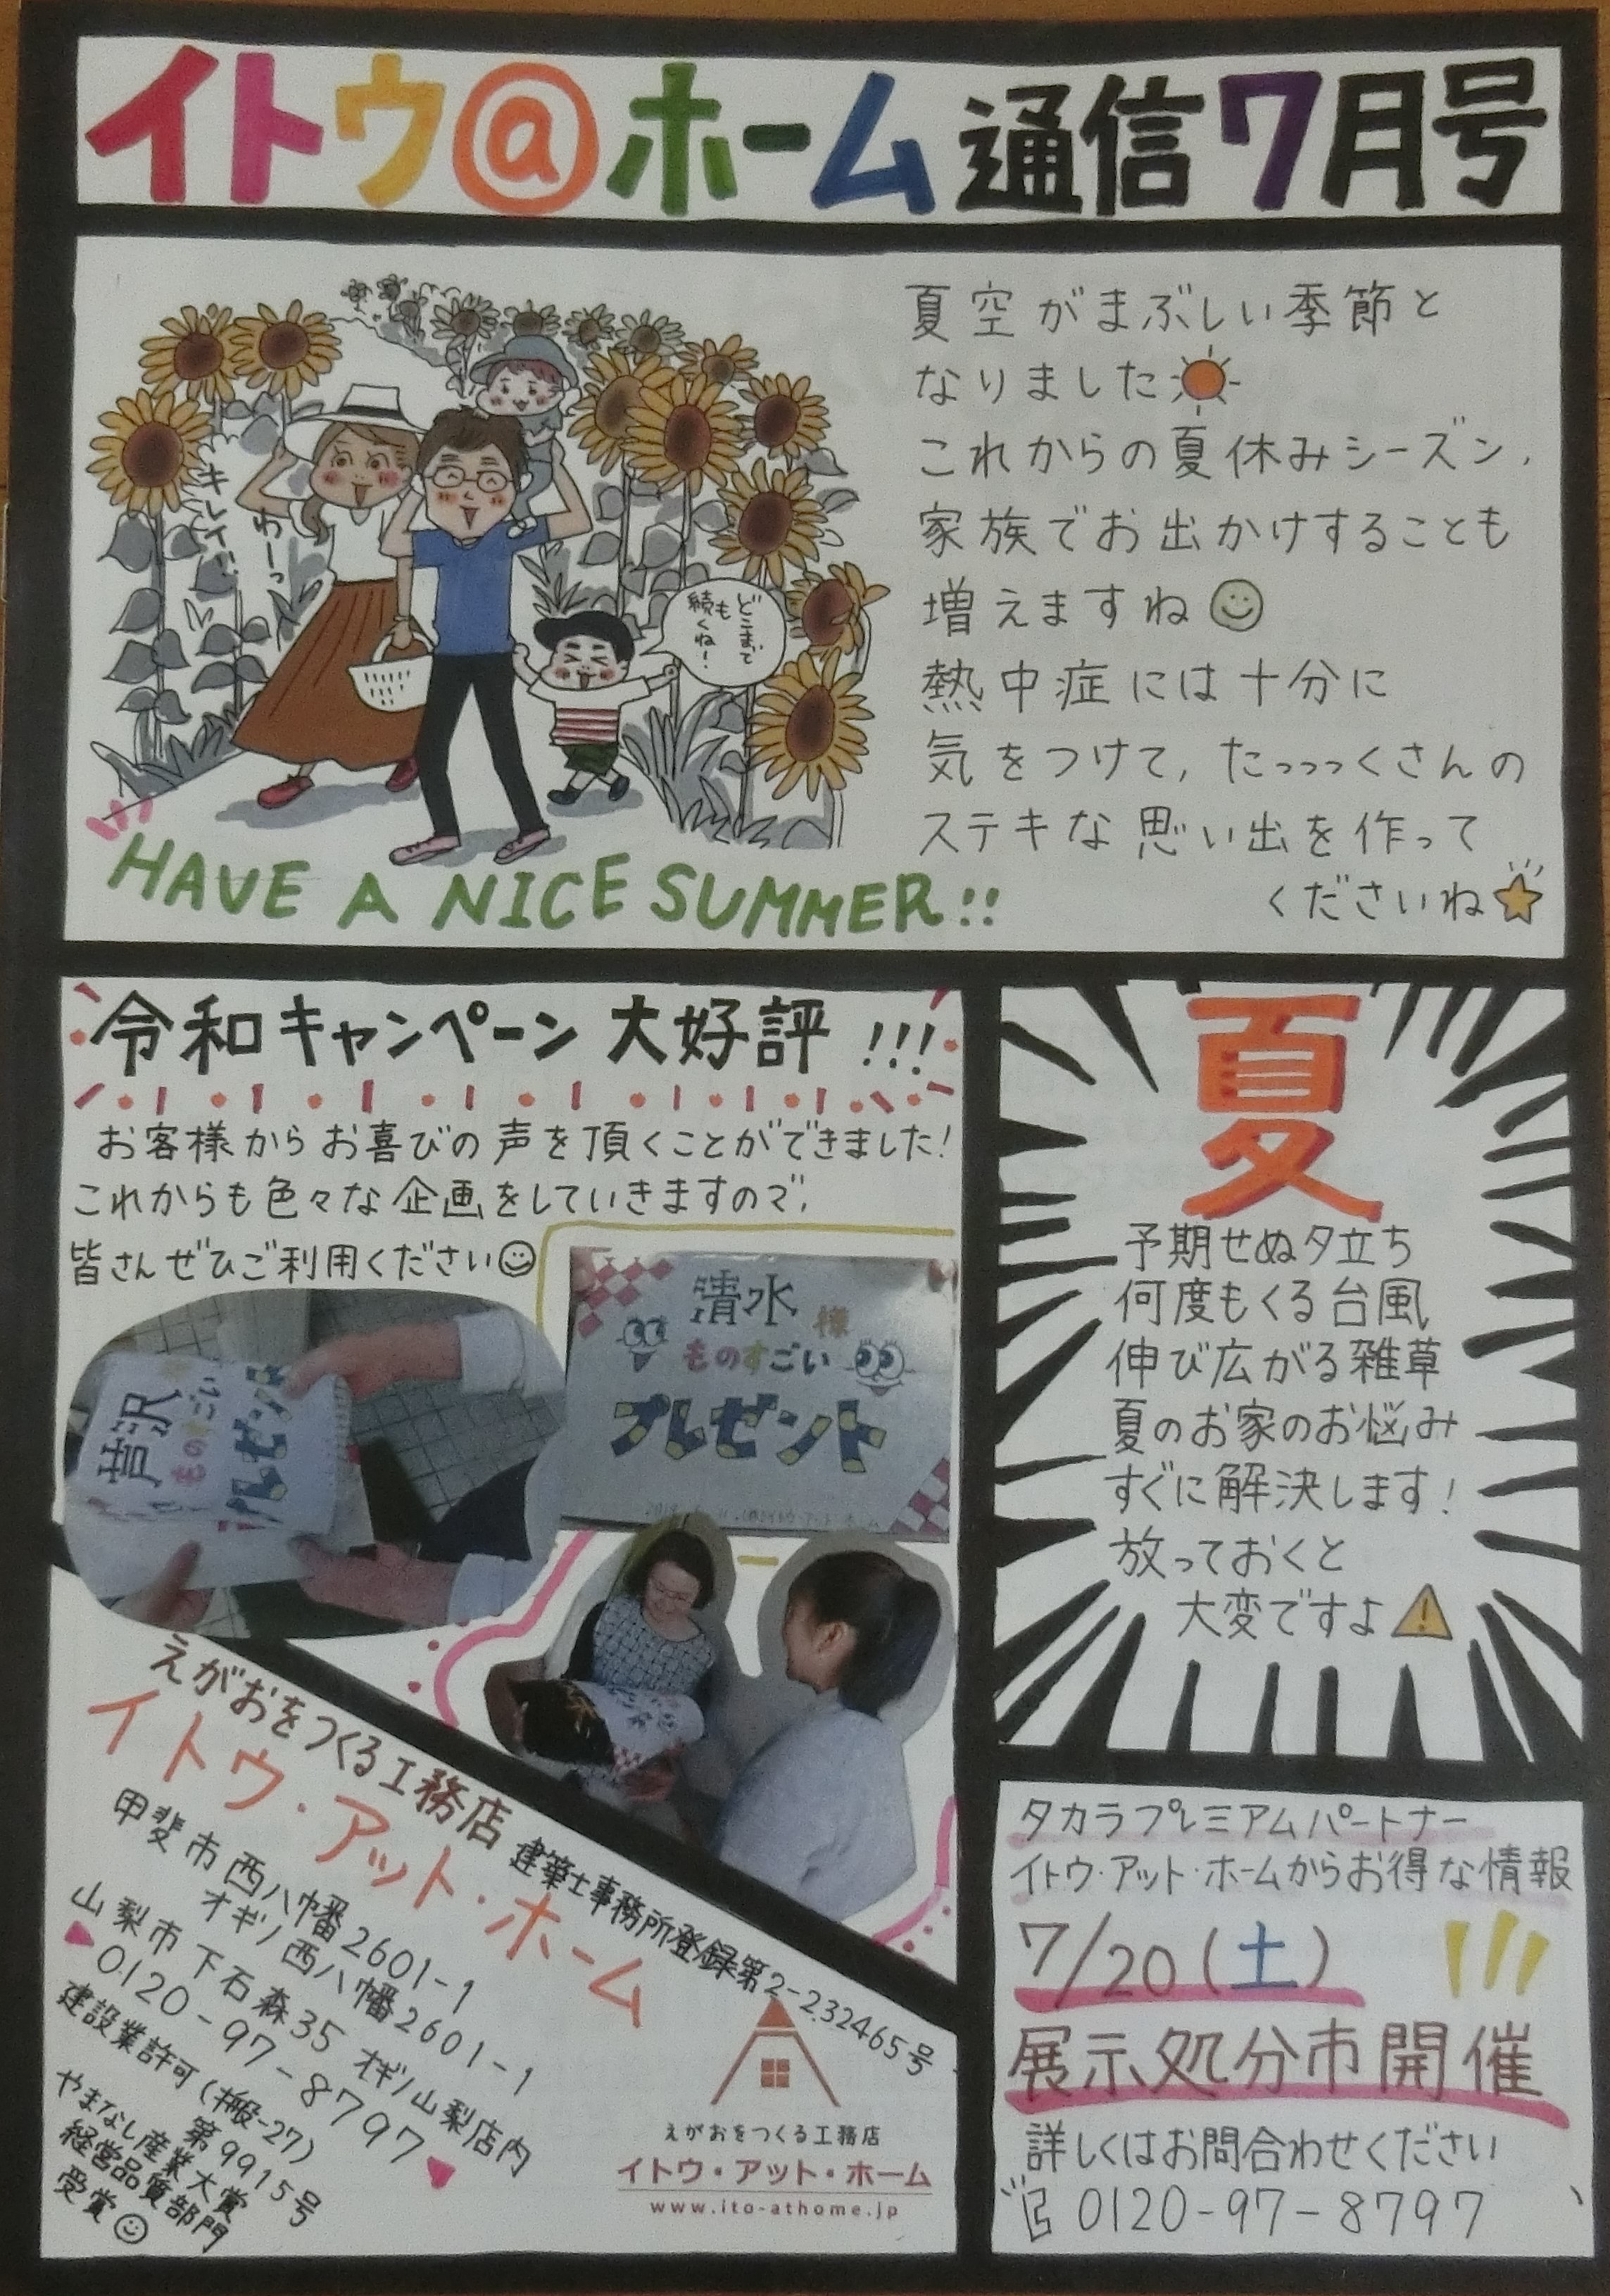 イトウ@ホーム 通信7月号
キレイ!!
わーっ
どこまで
も
続くね!
HAVE A NICE SUMMER!!
夏空がまぶしい季節と
なりました
これからの夏休みシーズン,
家族でお出かけすることも
増えますね
熱中症には十分に
気をつけて,たっっっくさんの
ステキな思い出を作って
くださいね
令和キャンペーン 大好評!!!
お客様からお喜びの声を頂くことができました!
これからも色々な企画をしていきますので,
皆さんぜひご利用ください
芦沢
清水様
ものすごい
プレゼント
夏
予期せぬ夕立ち
何度もくる台風
伸び広がる雑草
夏のお家のお悩み
すぐに解決します!
放っておくと
大変ですよ
えがおをつくる工務店 建築士事務所登録第2-232465号
イトウ・アット・ホーム
甲斐市西八幡2601-1
オギノ西八幡2601-1
山梨市下石森35 オギノ山梨店内
0120-97-8797
建設業許可(般-27)
第9915号
やまなし産業大賞
経営品質部門
受賞
えがおをつくる工務店
イトウ・アット・ホーム
www.ito-athome.jp
タカラプレミアムパートナー
イトウ・アット・ホームからお得な情報
7/20(土)
展示処分市開催
詳しくはお問合わせください
0120-97-8797